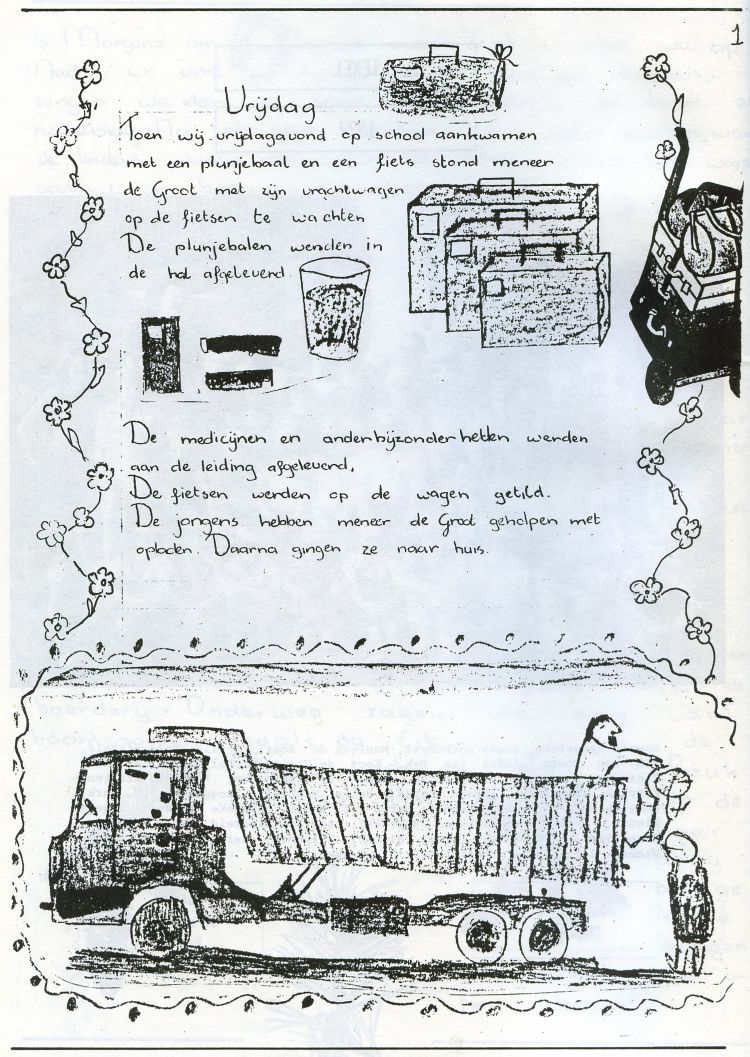 1
Vrijdag
Toen wij vrijdagavond op school aankwamen
met een plunjebaal en een fiets stond meneer
de Groot met zijn vrachtwagen
op de fietsen te wachten
De plunjebalen werden in
de hal afgeleverd.
De medicijnen en anderbijzonderhetten werden
aan de leiding afgeleverd.
De fietsen werden op de wagen getild.
De jongens hebben meneer de Groot geholpen met
opladen. Daarna gingen ze naar huis.